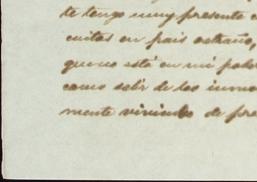 te tengo muy presente
cuitas en pais estraño,
que no está en mi
como salir de los
mente viviendo de